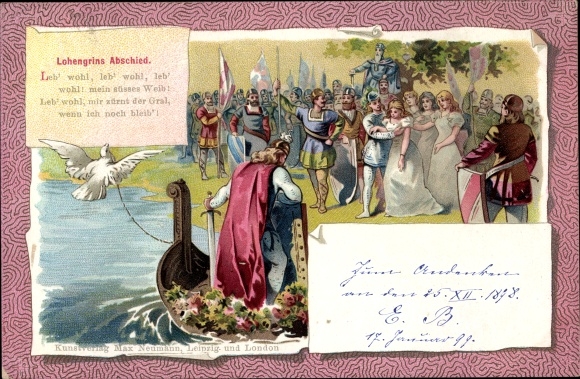 Lohengrins Abschied.
Leb' wohl, leb' wohl, leb'
wohl! mein süsses Weib!
Leb' wohl, mir zürnt der Gral,
wenn ich noch bleib'!
Zum Andenken
an den 25. XII. 1898.
E. B.
17. Januar 99.
Kunstverlag Max Neumann, Leipzig und London